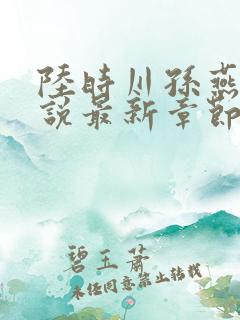 陸時川孫燕
說最新章節
碧玉蕭
未經同意禁止轉載